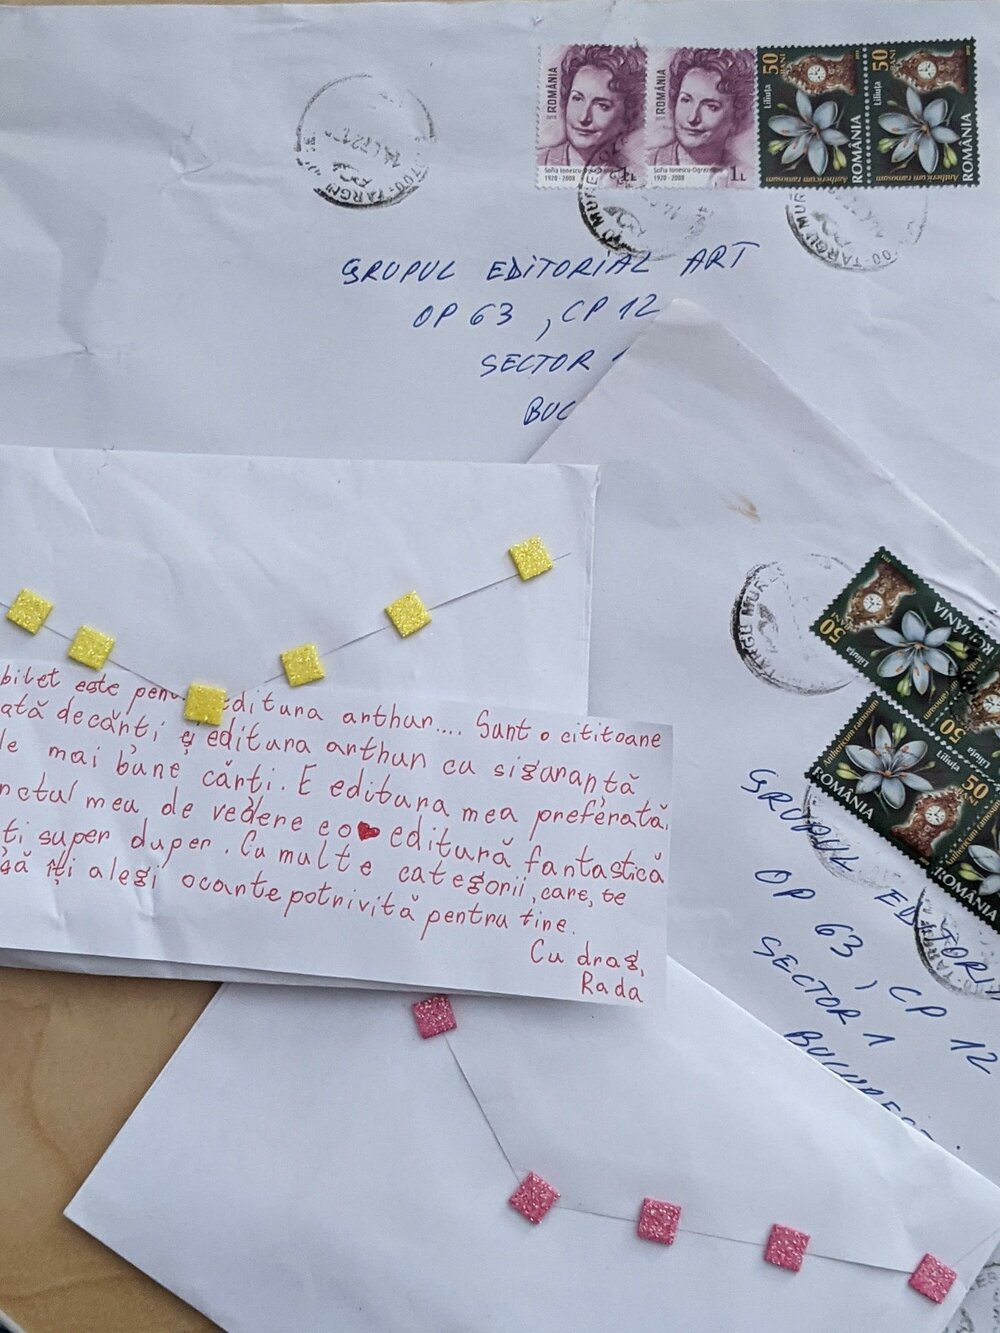 ROMÂNIA
Sofia Ionescu-Ogrezeanu
1920 - 2008
1L
ROMÂNIA
Sofia Ionescu-Ogrezeanu
1920 - 2008
1L
50 BANI
Liliuța
ROMÂNIA
Anthericum ramosum
50 BANI
Liliuța
ROMÂNIA
Anthericum ramosum
GRUPUL EDITORIAL ART
OP 63, CP 12
SECTOR
BUC
TARGU MUR
50
ROMÂNIA
Liliuța
50
Anthericum ramosum
Liliuța
50
ROMÂNIA
Anthericum ramosum
ROMÂNIA
GRUPUL EDITORI
OP 63, CP 12
SECTOR 1
BUCUREȘ
bilet este pen editura arthur.... Sunt o cititoare
ată de cărți și editura arthur cu siguranță
le mai bune cărți. E editura mea preferată,
nctul meu de vedere e o editură fantastică
ti super duper. Cu multe categorii, care, te
să îți alegi o carte potrivită pentru tine.
Cu drag,
Rada